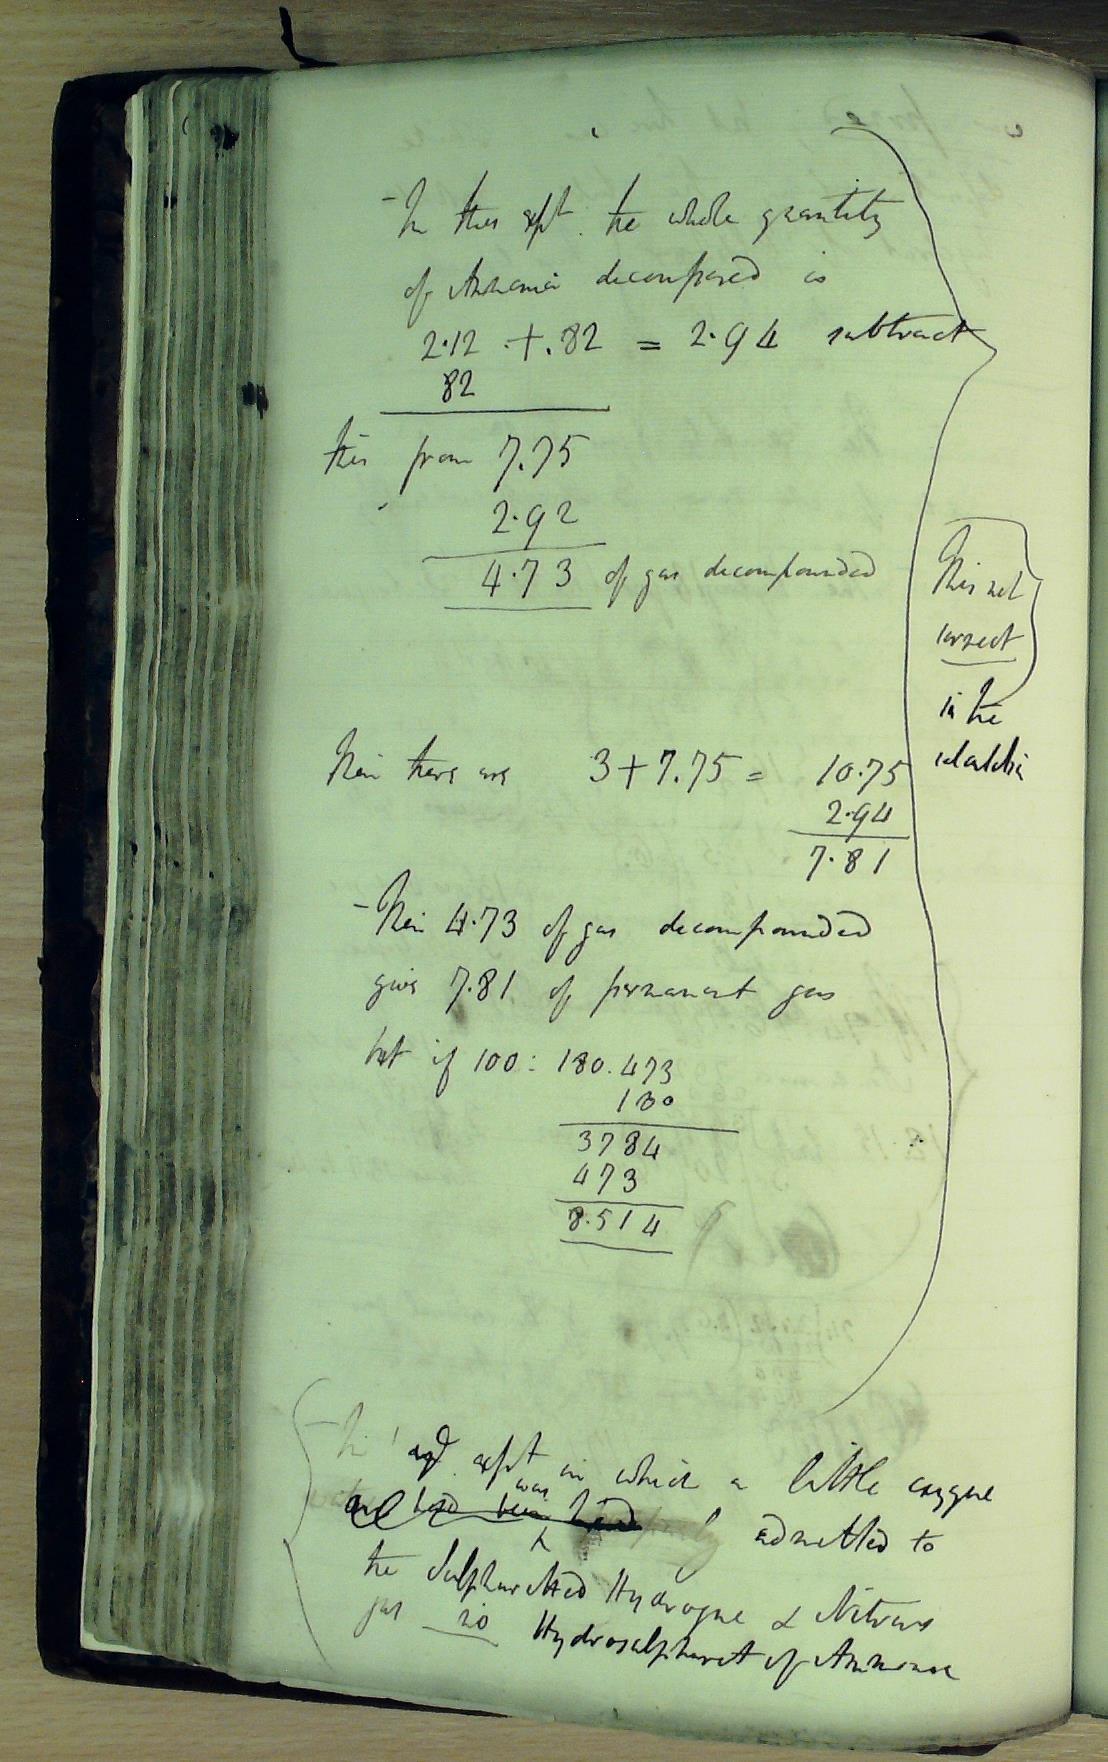 In this expt. the whole quantity
of Ammonia decomposed is
2.12 + .82 = 2.94 subtract
82
this from 7.75
2.92
4.73 of gas decompounded
This not
correct
in the
Then there are 3 + 7.75 = 10.75
2.94
7.81
Then 4.73 of gas decompounded
give 7.81 of permanent gas
but if 100 : 180. 473
180
3784
473
8.514
expt in which a little oxygne
was
had been admitted to
the Sulphuretted Hydrogne & Nitrous
gas no Hydrosulphuret of Ammonia